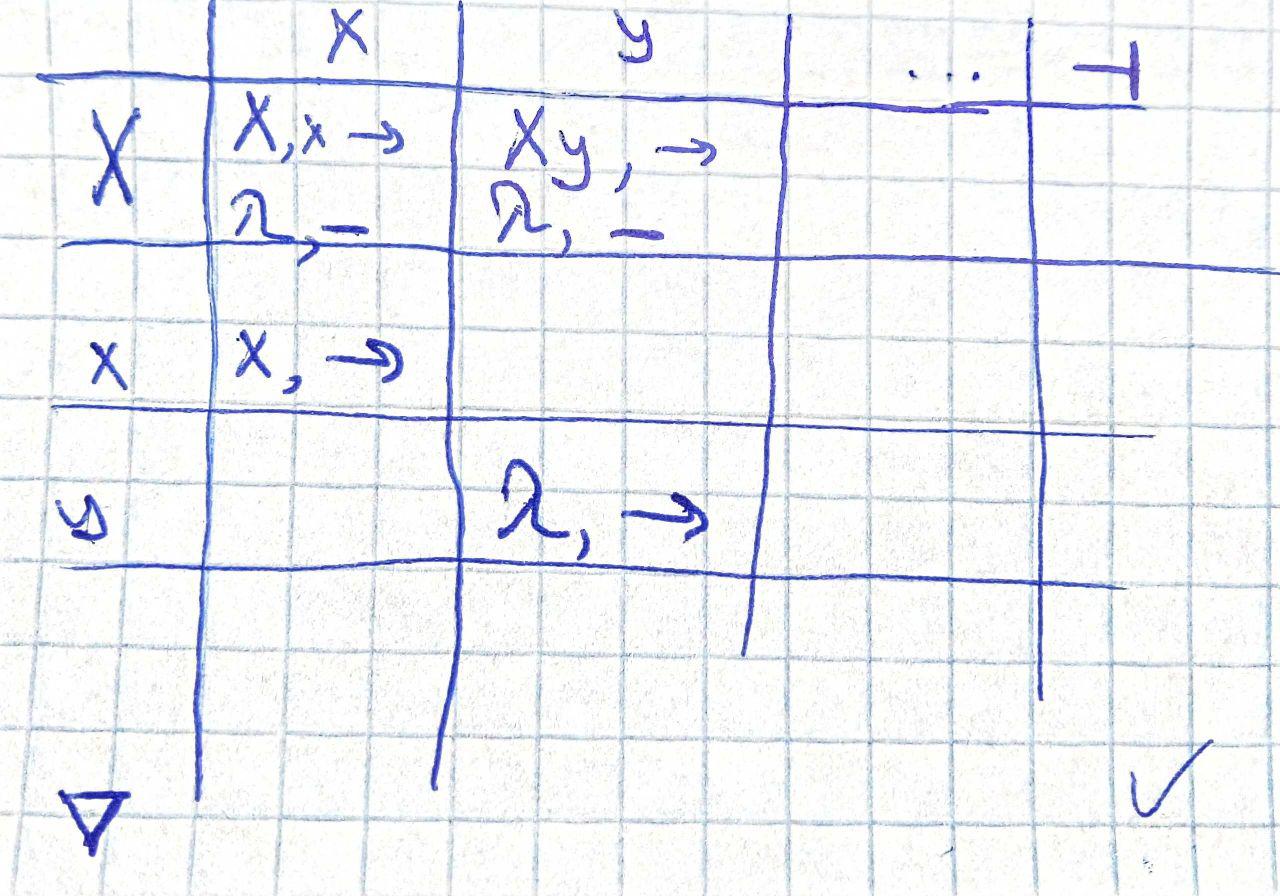 x y ... ⊣
X X, x → Xy, →
λ, - λ, -
x x, →
y λ, →
▽ ✓